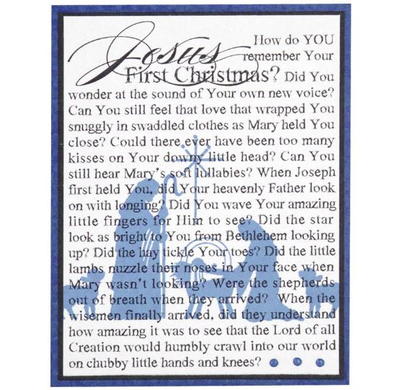 Jesus How do YOU
remember Your
First Christmas? Did You
wonder at the sound of Your own new voice?
Can You still feel that love that wrapped You
snuggly in swaddled clothes as Mary held You
close? Could there ever have been too many
kisses on Your downy little head? Can You
still hear Mary's soft lullabies? When Joseph
first held You, did Your heavenly Father look
on with longing? Did You wave Your amazing
little fingers for Him to see? Did the star
look as bright to You from Bethlehem looking
up? Did the hay tickle Your toes? Did the little
lambs nuzzle their noses in Your face when
Mary wasn't looking? Were the shepherds
out of breath when they arrived? When the
wisemen finally arrived, did they understand
how amazing it was to see that the Lord of all
Creation would humbly crawl into our world
on chubby little hands and knees?